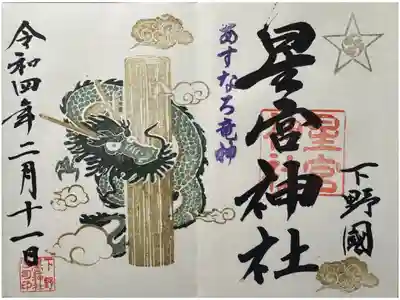 下野國
星宮神社
星宮神社
あすなろ竜神
令和四年二月十一日